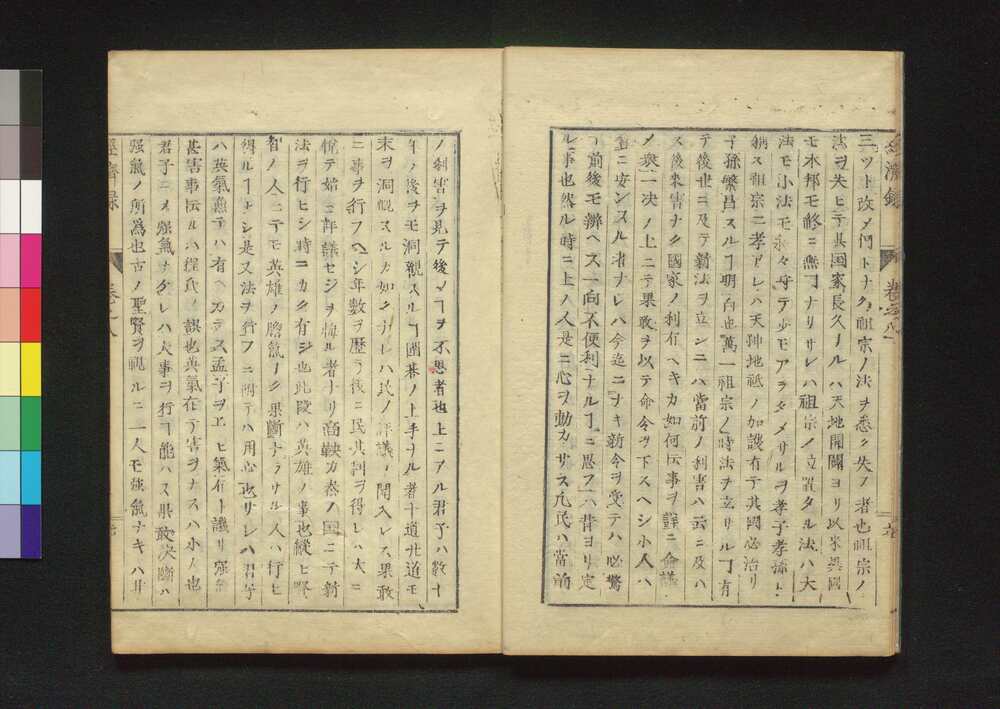 經濟録
卷之八
三ツト改メ何トナク祖宗ノ法ヲ悉ク失フ者也祖宗ノ
法ヲ失ヒテ其国家長久ナルハ天地開闢ヨリ以来異國
モ本邦モ終ニ無ヿナリサレハ祖宗ノ立置タル法ハ大
法モ小法モ永々守テ少モアラタメサルヲ孝子孝孫ト
稱ス祖宗ニ孝アレハ天神地祇ノ加護有テ其國必治リ
子孫繁昌スルヿ明白也萬一祖宗ノ時法ヲ立サルヿ有
テ後世ニ及テ新法ヲ立ンニハ當前ノ利害ハ云ニ及ハ
ス後来害ナク國家ノ利有ヘキカ如何伝事ヲ詳ニ僉議
ノ衆一决ノ上ニテ果敢ヲ以テ命令ヲ下スヘシ小人ハ
舊ニ安ンスル者ナレハ今迄ニナキ新令ヲ受テハ必驚
前後モ辨ヘス一向不便利ナルヿニ思フハ昔ヨリ定
ル事也然ル時ニ上ノ人是ニ心ヲ動カサス凡民ハ當前
ノ利害ヲ見テ後ノヿヲ不思者也上ニアル君子ハ数十
年ノ後ヲモ洞觀スルヿ圍碁ノ上手ナル者十道廿道モ
末ヲ洞觀スルカ如クナレハ民ノ評議ノ聞入レス果敢
ニ事ヲ行フヘシ年數ヲ歴テ後ニ民其利ヲ得レハ大ニ
悦テ始ニ評議セシヲ悔ル者ナリ商鞅カ秦ノ國ニテ新
法ヲ行ヒシ時ニカク有シ也此段ハ英雄ノ事也縱ヒ賢
智ノ人ニテモ英雄ノ膽氣ナク果斷ナラサル人ハ行ヒ
得ルヿナシ是又法ヲ行フニ附テハ用心也サレハ君子
ハ英氣無テハ有ヘカラス孟子ヲエヒ氣有ト譏リ強氣
甚害事伝ルハ程氏ノ誤也英氣在テ害ヲナスハ小人也
君子ニメ強氣ナケレハ大事ヲ行フ能ハス果敢决斷ハ
强氣ノ所為也古ノ聖賢ヲ視ルニ一人モ强氣ナキハ井
經濟録
卷之八